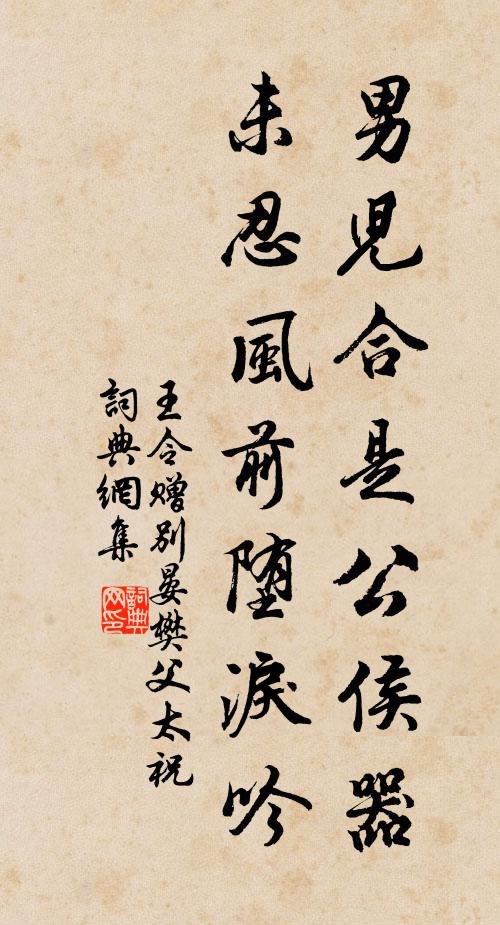 男児合是公侯器
未忍風前堕淚吟
王令贈别晏樊父太祝
詞典網集
詞典
网印